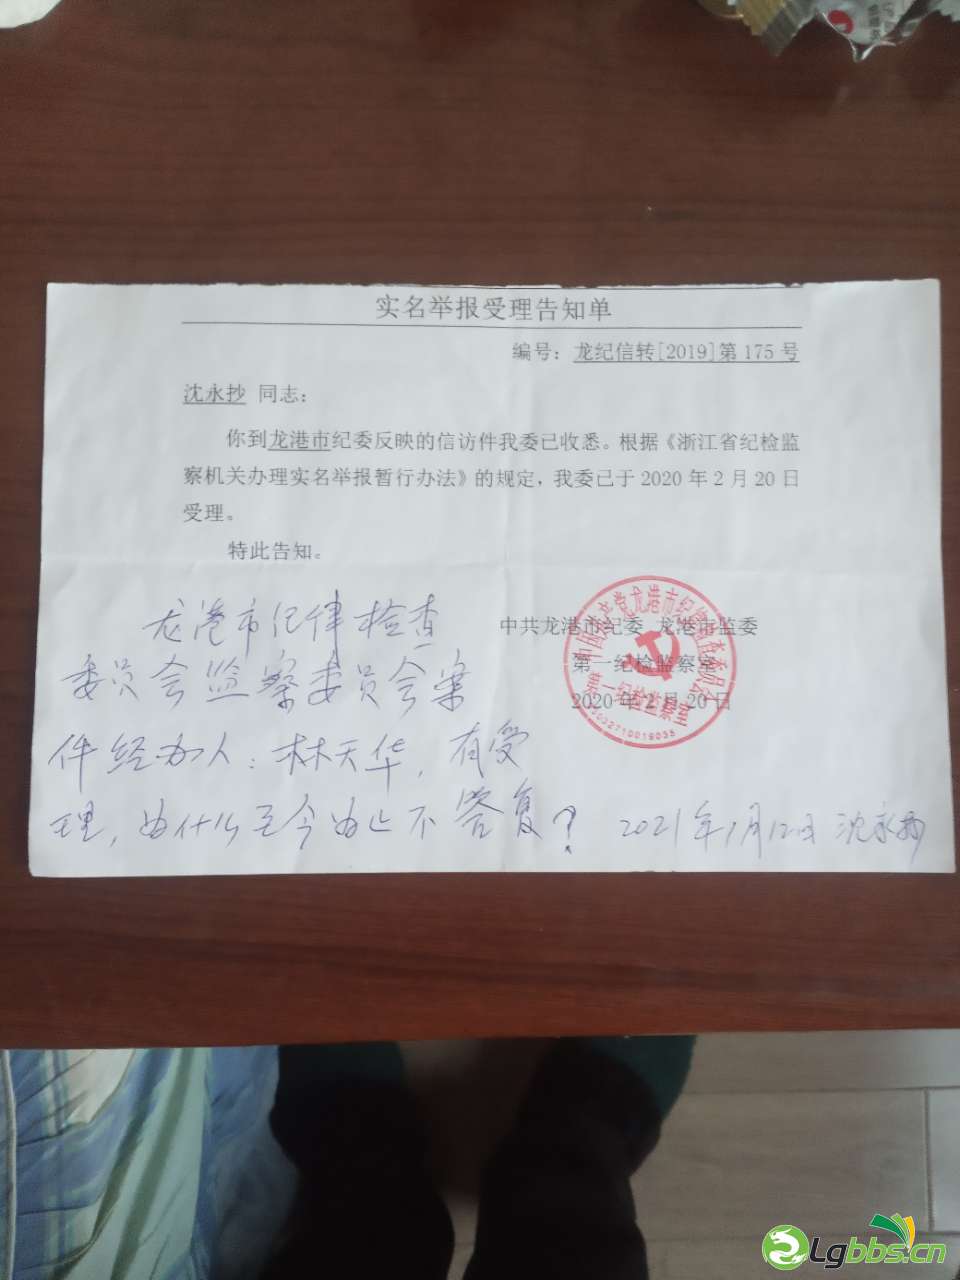 实名举报受理告知单
编号：龙纪信转[2019]第 175 号
沈永抄 同志：
你到龙港市纪委反映的信访件我委已收悉。根据《浙江省纪检监
察机关办理实名举报暂行办法》的规定，我委已于 2020 年 2 月 20 日
受理。
特此告知。
中共龙港市纪委 龙港市监委
第一纪检监察室
2020 年 2 月 20 日
中国共产党龙港市纪律检查委员会
第一纪检监察室
龙港市纪律检查
委员会监察委员会案
件经办人：林天华，有受
理，为什么至今为止不答复？
2021年1月12日 沈永抄
Lgbbs.cn